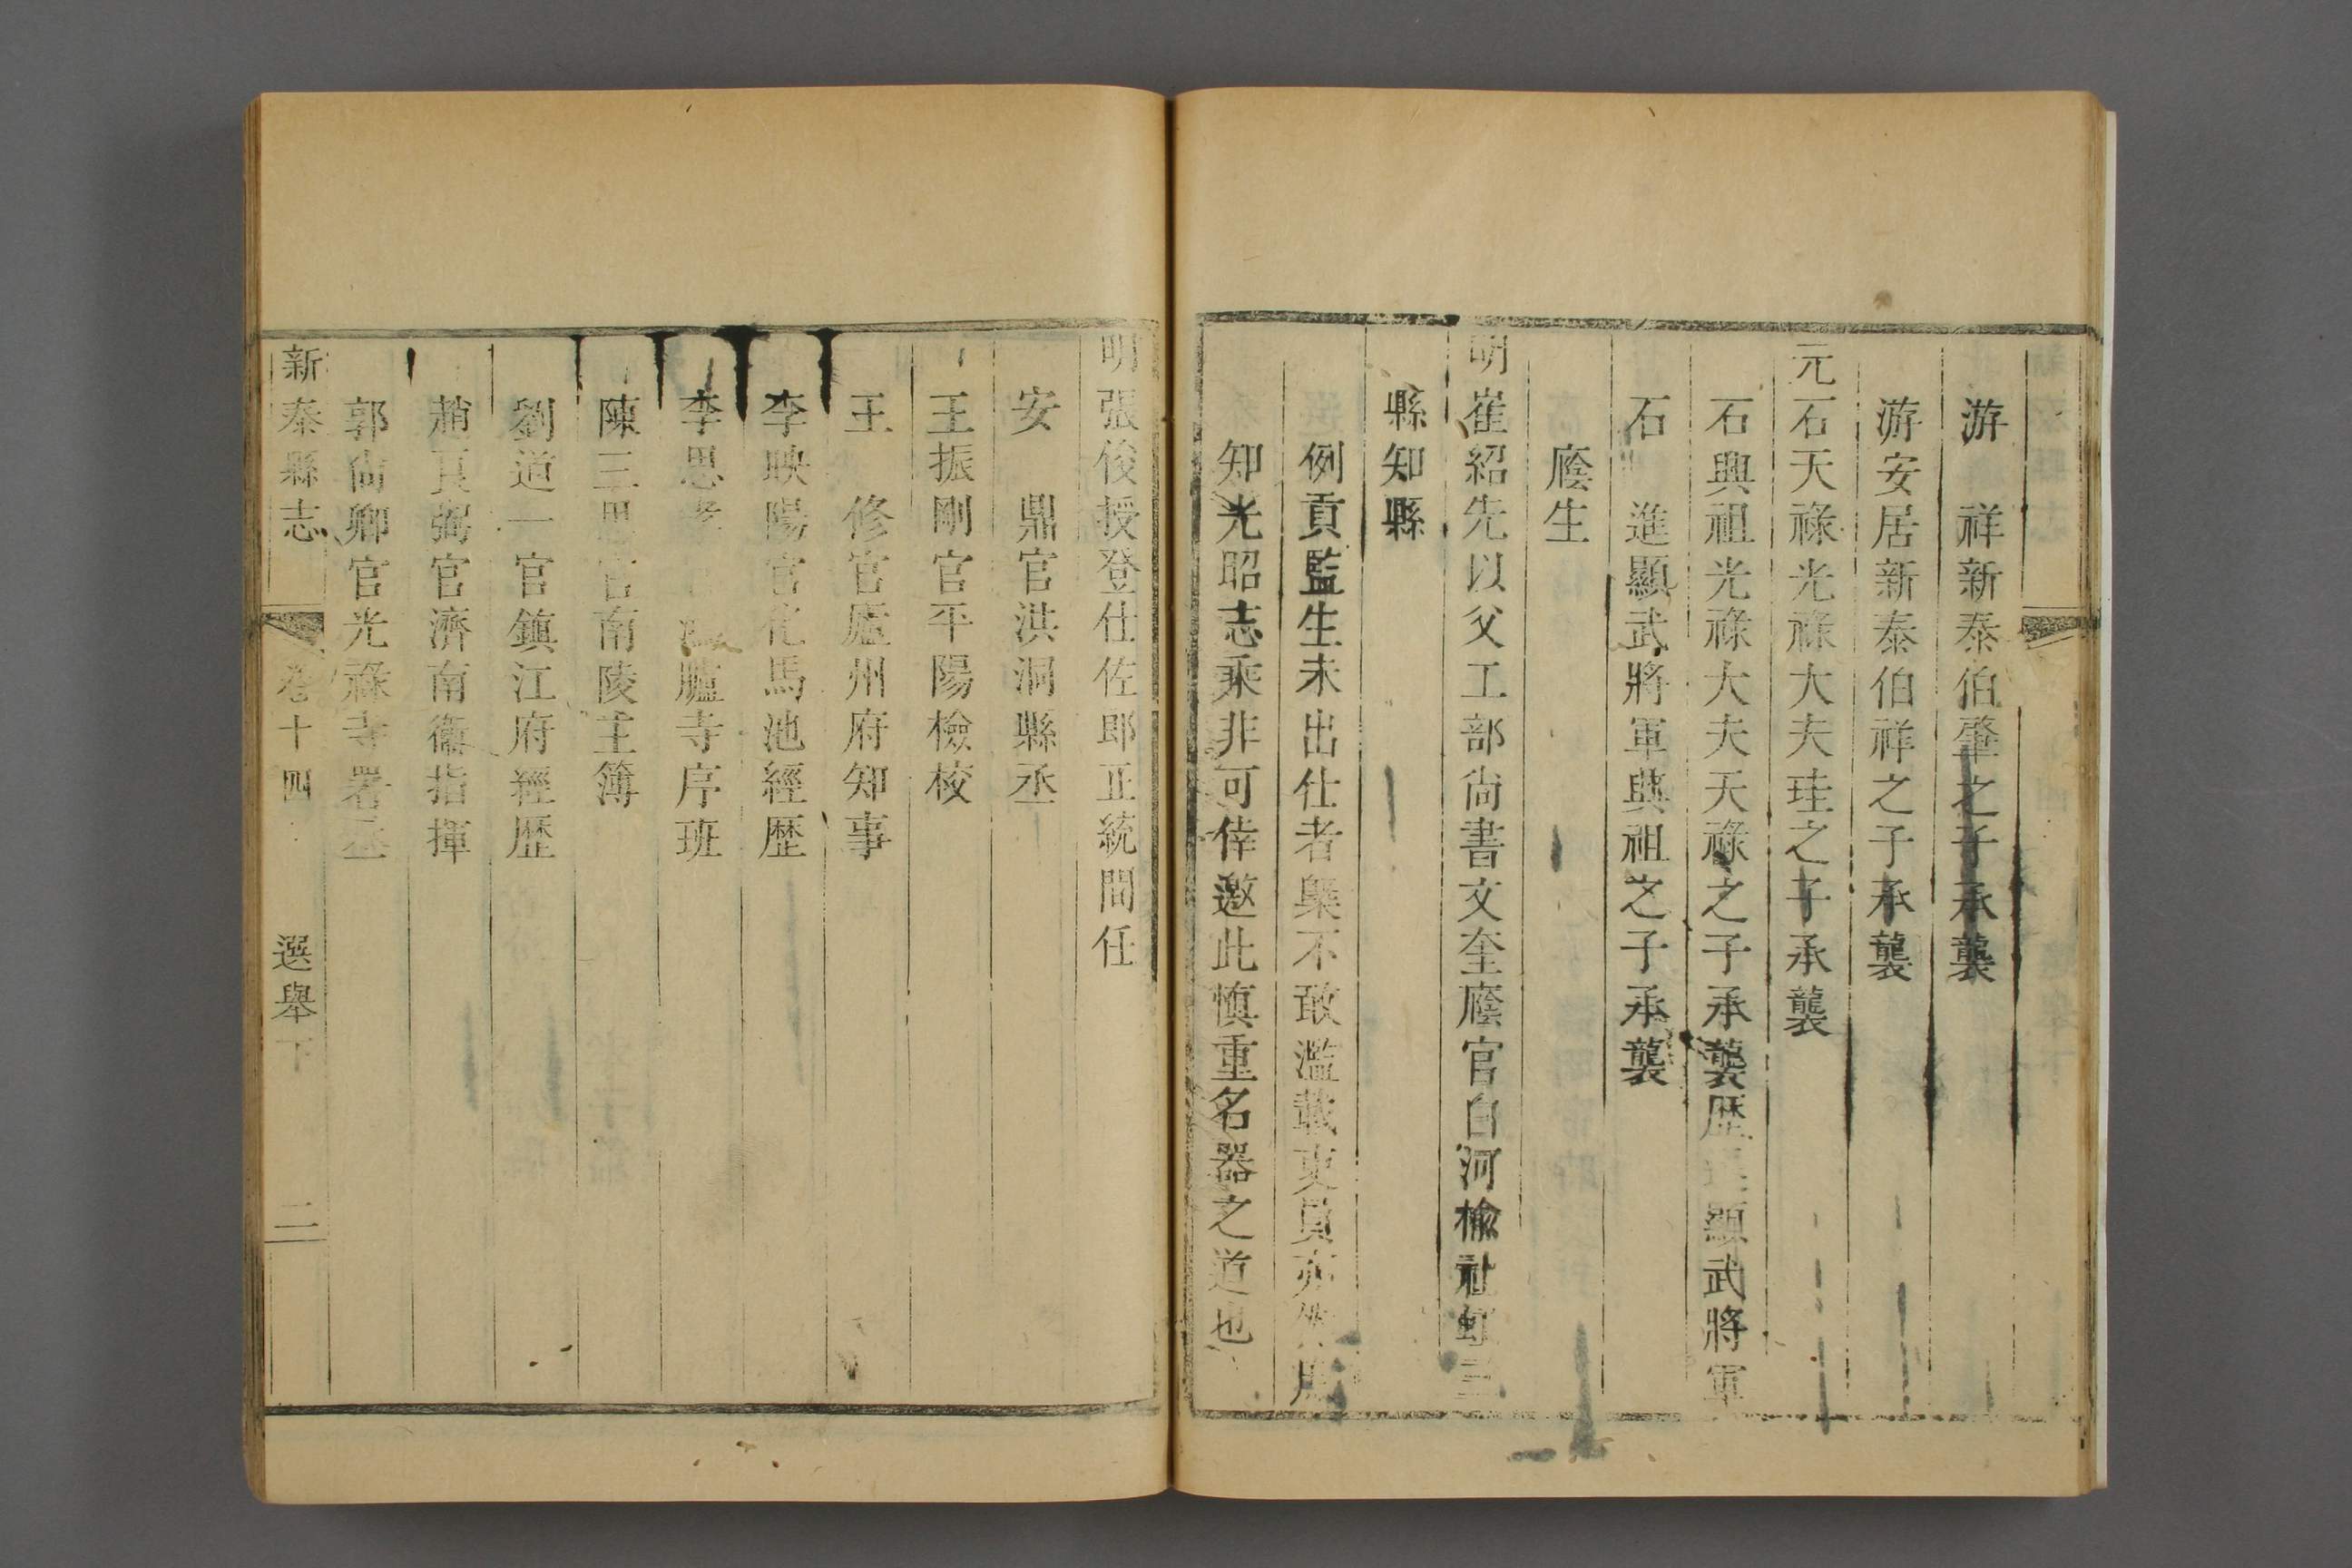 游　祥新泰伯肇之子承襲
游安居新泰伯祥之子承襲
元石天祿光祿大夫珪之子承襲
石興祖光祿大夫天祿之子承襲歴　顯武將軍
石　進顯武將軍興祖之子承襲
廕生
明崔紹先以父工部尙書文奎廕官白河榆社虹三
縣知縣
例貢監生未出仕者槩不敢濫載吏員亦然庶
知光昭志乘非可倖邀此慎重名器之道也
明張俊授登仕佐郎正統間任
安　鼎官洪洞縣丞
王振剛官平陽檢校
王　修官廬州府知事
李映陽官化馬池經歴
李思　臚寺序班
陳三思官南陵主簿
劉道一官鎮江府經歴
趙良弼官濟南衞指揮
郭尙卿官光祿寺署丞
新泰縣志　卷十四　選舉下　二